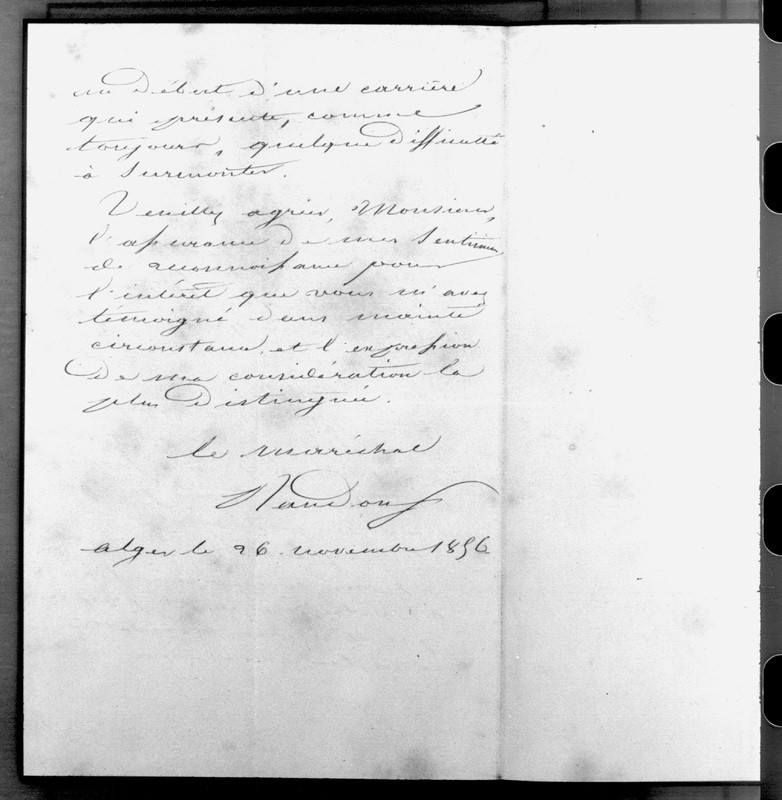 au début d'une carrière
qui présente, comme
toujours, quelque difficulté
à surmonter.
Veuillez agréer, Monsieur,
l'assurance de mes sentimens
de reconnoissance pour
l'intérêt que vous m'avez
témoigné dans mainte
circonstance, et l'expression
de ma considération la
plus distinguée.
le Maréchal
Randon
alger le 26 novembre 1856